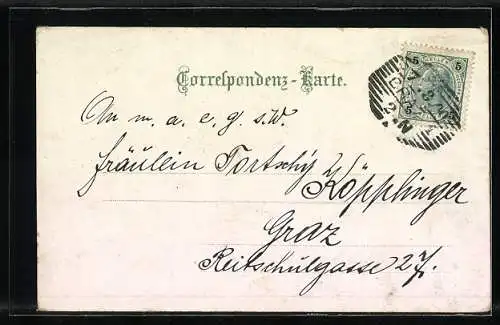 Correspondenz-Karte.
5 5
An m. a. e. g. s.W.
Fräulein Tortschy Köpplinger
Graz
Reitschulgasse 27.